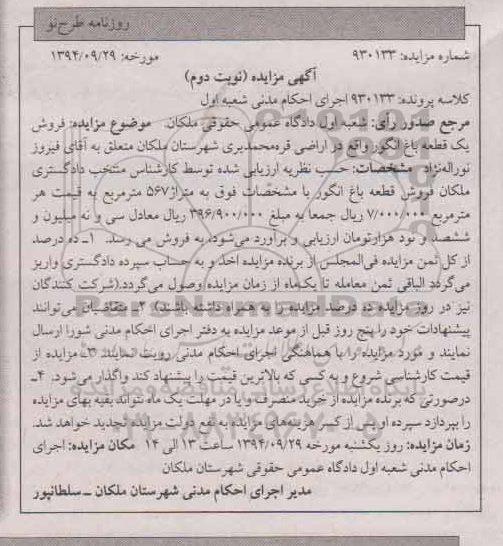 روزنامه طرح‌نو
شماره مزایده: ۹۳۰۱۳۳ مورخه: ۱۳۹۴/۰۹/۲۹
آگهی مزایده (نوبت دوم)
کلاسه پرونده: ۹۳۰۱۳۳ اجرای احکام مدنی شعبه اول
مرجع صدور رأی: شعبه اول دادگاه عمومی حقوقی ملکان. موضوع مزایده: فروش
یک قطعه باغ انگور واقع در اراضی قره‌محمدیری شهرستان ملکان متعلق به آقای فیروز
نوراله‌نژاد مشخصات: حسب نظریه ارزیابی شده توسط کارشناس منتخب دادگستری
ملکان فروش قطعه باغ انگور با مشخصات فوق به متراژ ۵۶۷ مترمربع به قیمت هر
مترمربع ۷/۰۰۰/۰۰۰ ریال جمعا به مبلغ ۳۹۶/۹۰۰/۰۰۰ ریال معادل سی و نه میلیون و
ششصد و نود هزارتومان ارزیابی و برآورد می‌شود، به فروش می رسد. ۱ـ ده درصد
از کل ثمن مزایده فی‌المجلس از برنده مزایده اخذ و به حساب سپرده دادگستری واریز
می‌گردد الباقی ثمن معامله تا یک‌ماه از زمان مزایده وصول می‌گردد.(شرکت کنندگان
نیز در روز مزایده ده درصد مزایده را به همراه داشته باشند) ۲ـ متقاضیان می‌توانند
پیشنهادات خود را پنج روز قبل از موعد مزایده به دفتر اجرای احکام مدنی شورا ارسال
نمایند و مورد مزایده را با هماهنگی اجرای احکام مدنی رویت نمایند ۳ـ مزایده از
قیمت کارشناسی شروع و به کسی که بالاترین قیمت را پیشنهاد کند واگذار می‌شود. ۴ـ
درصورتی که برنده مزایده از خرید منصرف و یا در مهلت یک ماه نتواند بقیه بهای مزایده
را بپردازد سپرده او پس از کسر هزینه‌های مزایده به نفع دولت مزایده تجدید خواهد شد.
زمان مزایده: روز یکشنبه مورخه ۱۳۹۴/۰۹/۲۹ ساعت ۱۳ الی ۱۴ مکان مزایده: اجرای
احکام مدنی شعبه اول دادگاه عمومی حقوقی شهرستان ملکان
مدیر اجرای احکام مدنی شهرستان ملکان ـ سلطانپور